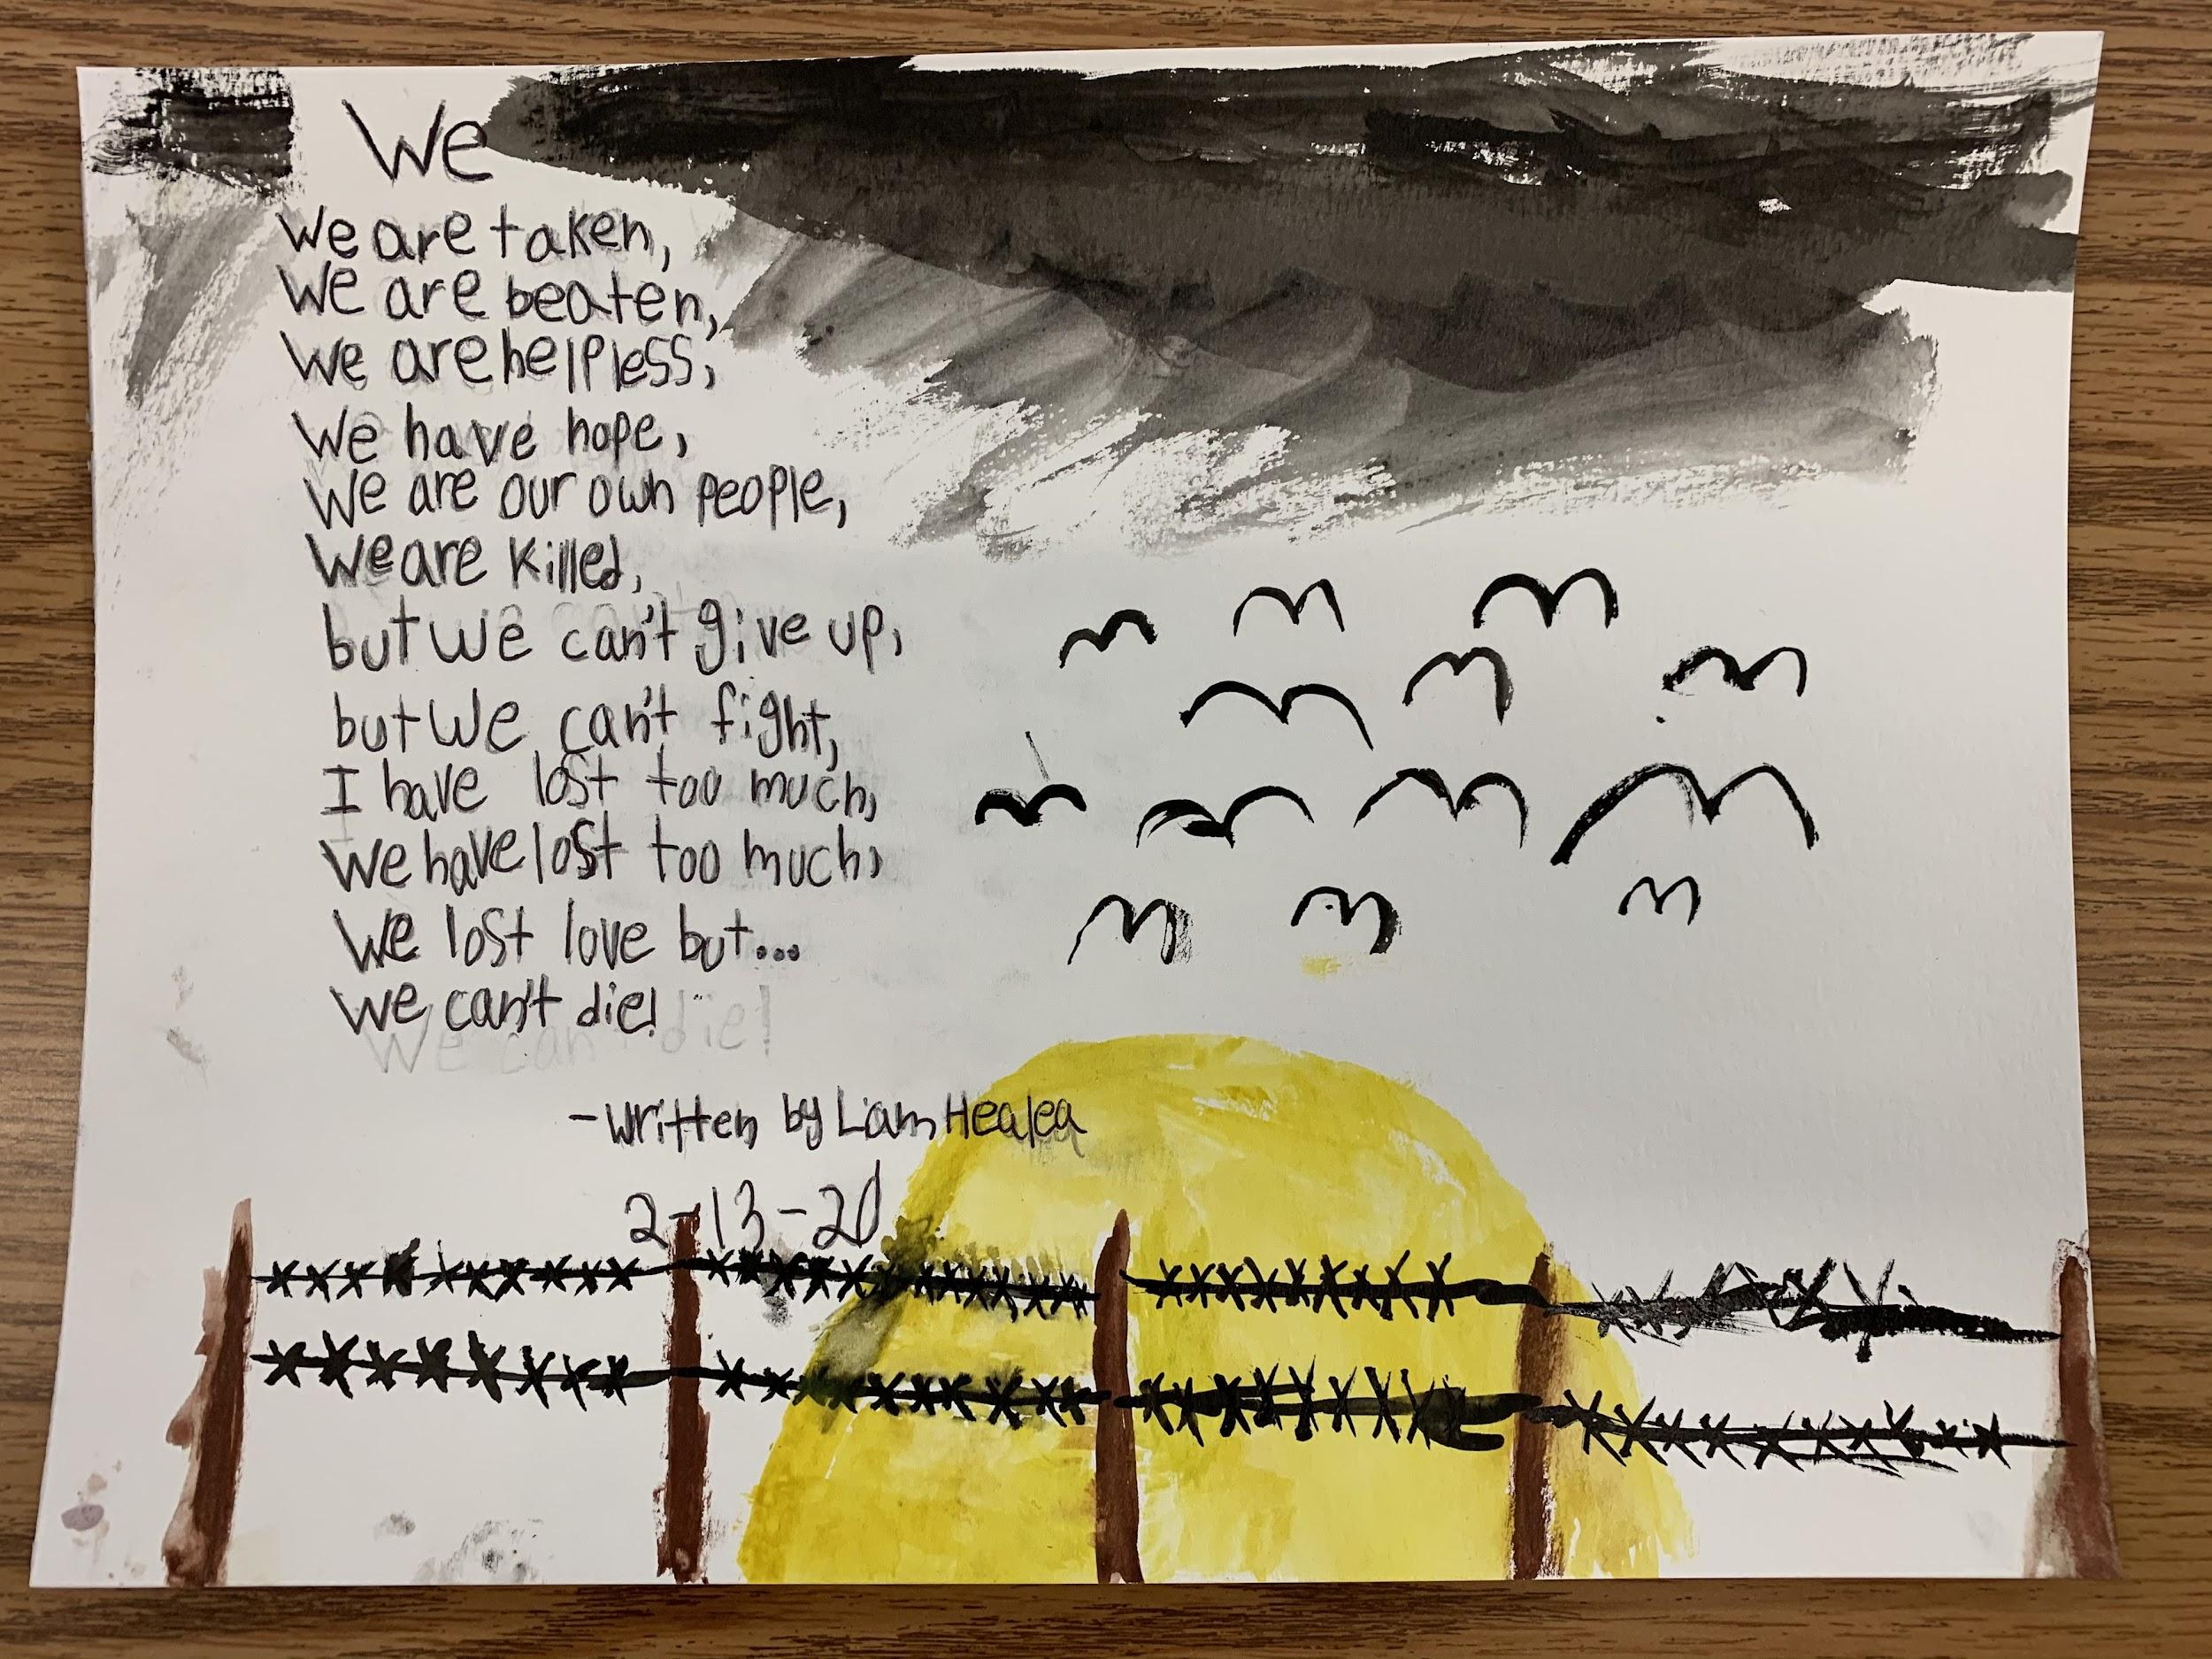 We
We are taken,
We are beaten,
We are helpless,
We have hope,
We are our own people,
We are killed,
but we can't give up,
but we can't fight,
I have lost too much,
We have lost too much,
We lost love but...
We can't die!
We can't die!
-Written by Liam Healea
2-13-20